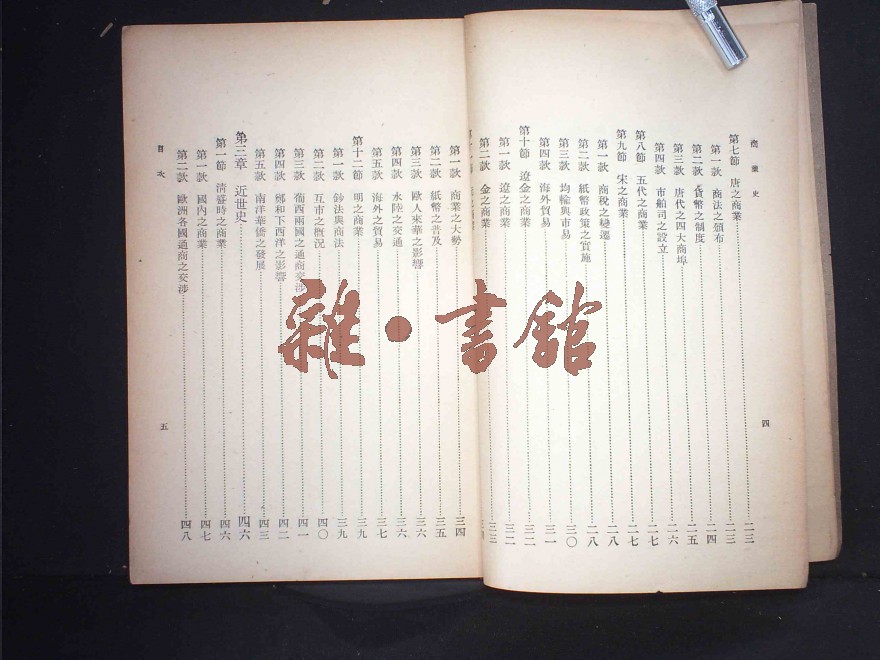 商業史
第七節 唐之商業 二三
第一款 商法之頒布 二三
第二款 貨幣之制度 二四
第三款 唐代之四大商埠 二五
第四款 市舶司之設立 二六
第八節 五代之商業 二七
第九節 宋之商業 二七
第一款 商稅之變遷 二八
第二款 紙幣政策之實施 二八
第三款 均輸與市易 三〇
第四款 海外貿易 三一
第十節 遼金之商業 三二
第一款 遼之商業 三二
第二款 金之商業 三三
四
第一款 商業之大勢 三四
第二款 紙幣之普及 三五
第三款 歐人來華之影響 三六
第四款 水陸之交通 三六
第五款 海外之貿易 三七
第十二節 明之商業 三九
第一款 鈔法與商法 三九
第二款 互市之概況 四〇
第三款 葡西兩國之通商交涉 四一
第四款 鄭和下西洋之影響 四二
第五款 南洋華僑之發展 四三
第三章 近世史 四六
第一節 清盛時之商業 四六
第一款 國內之商業 四七
第二款 歐洲各國通商之交涉 四八
目次
五
雜·書館